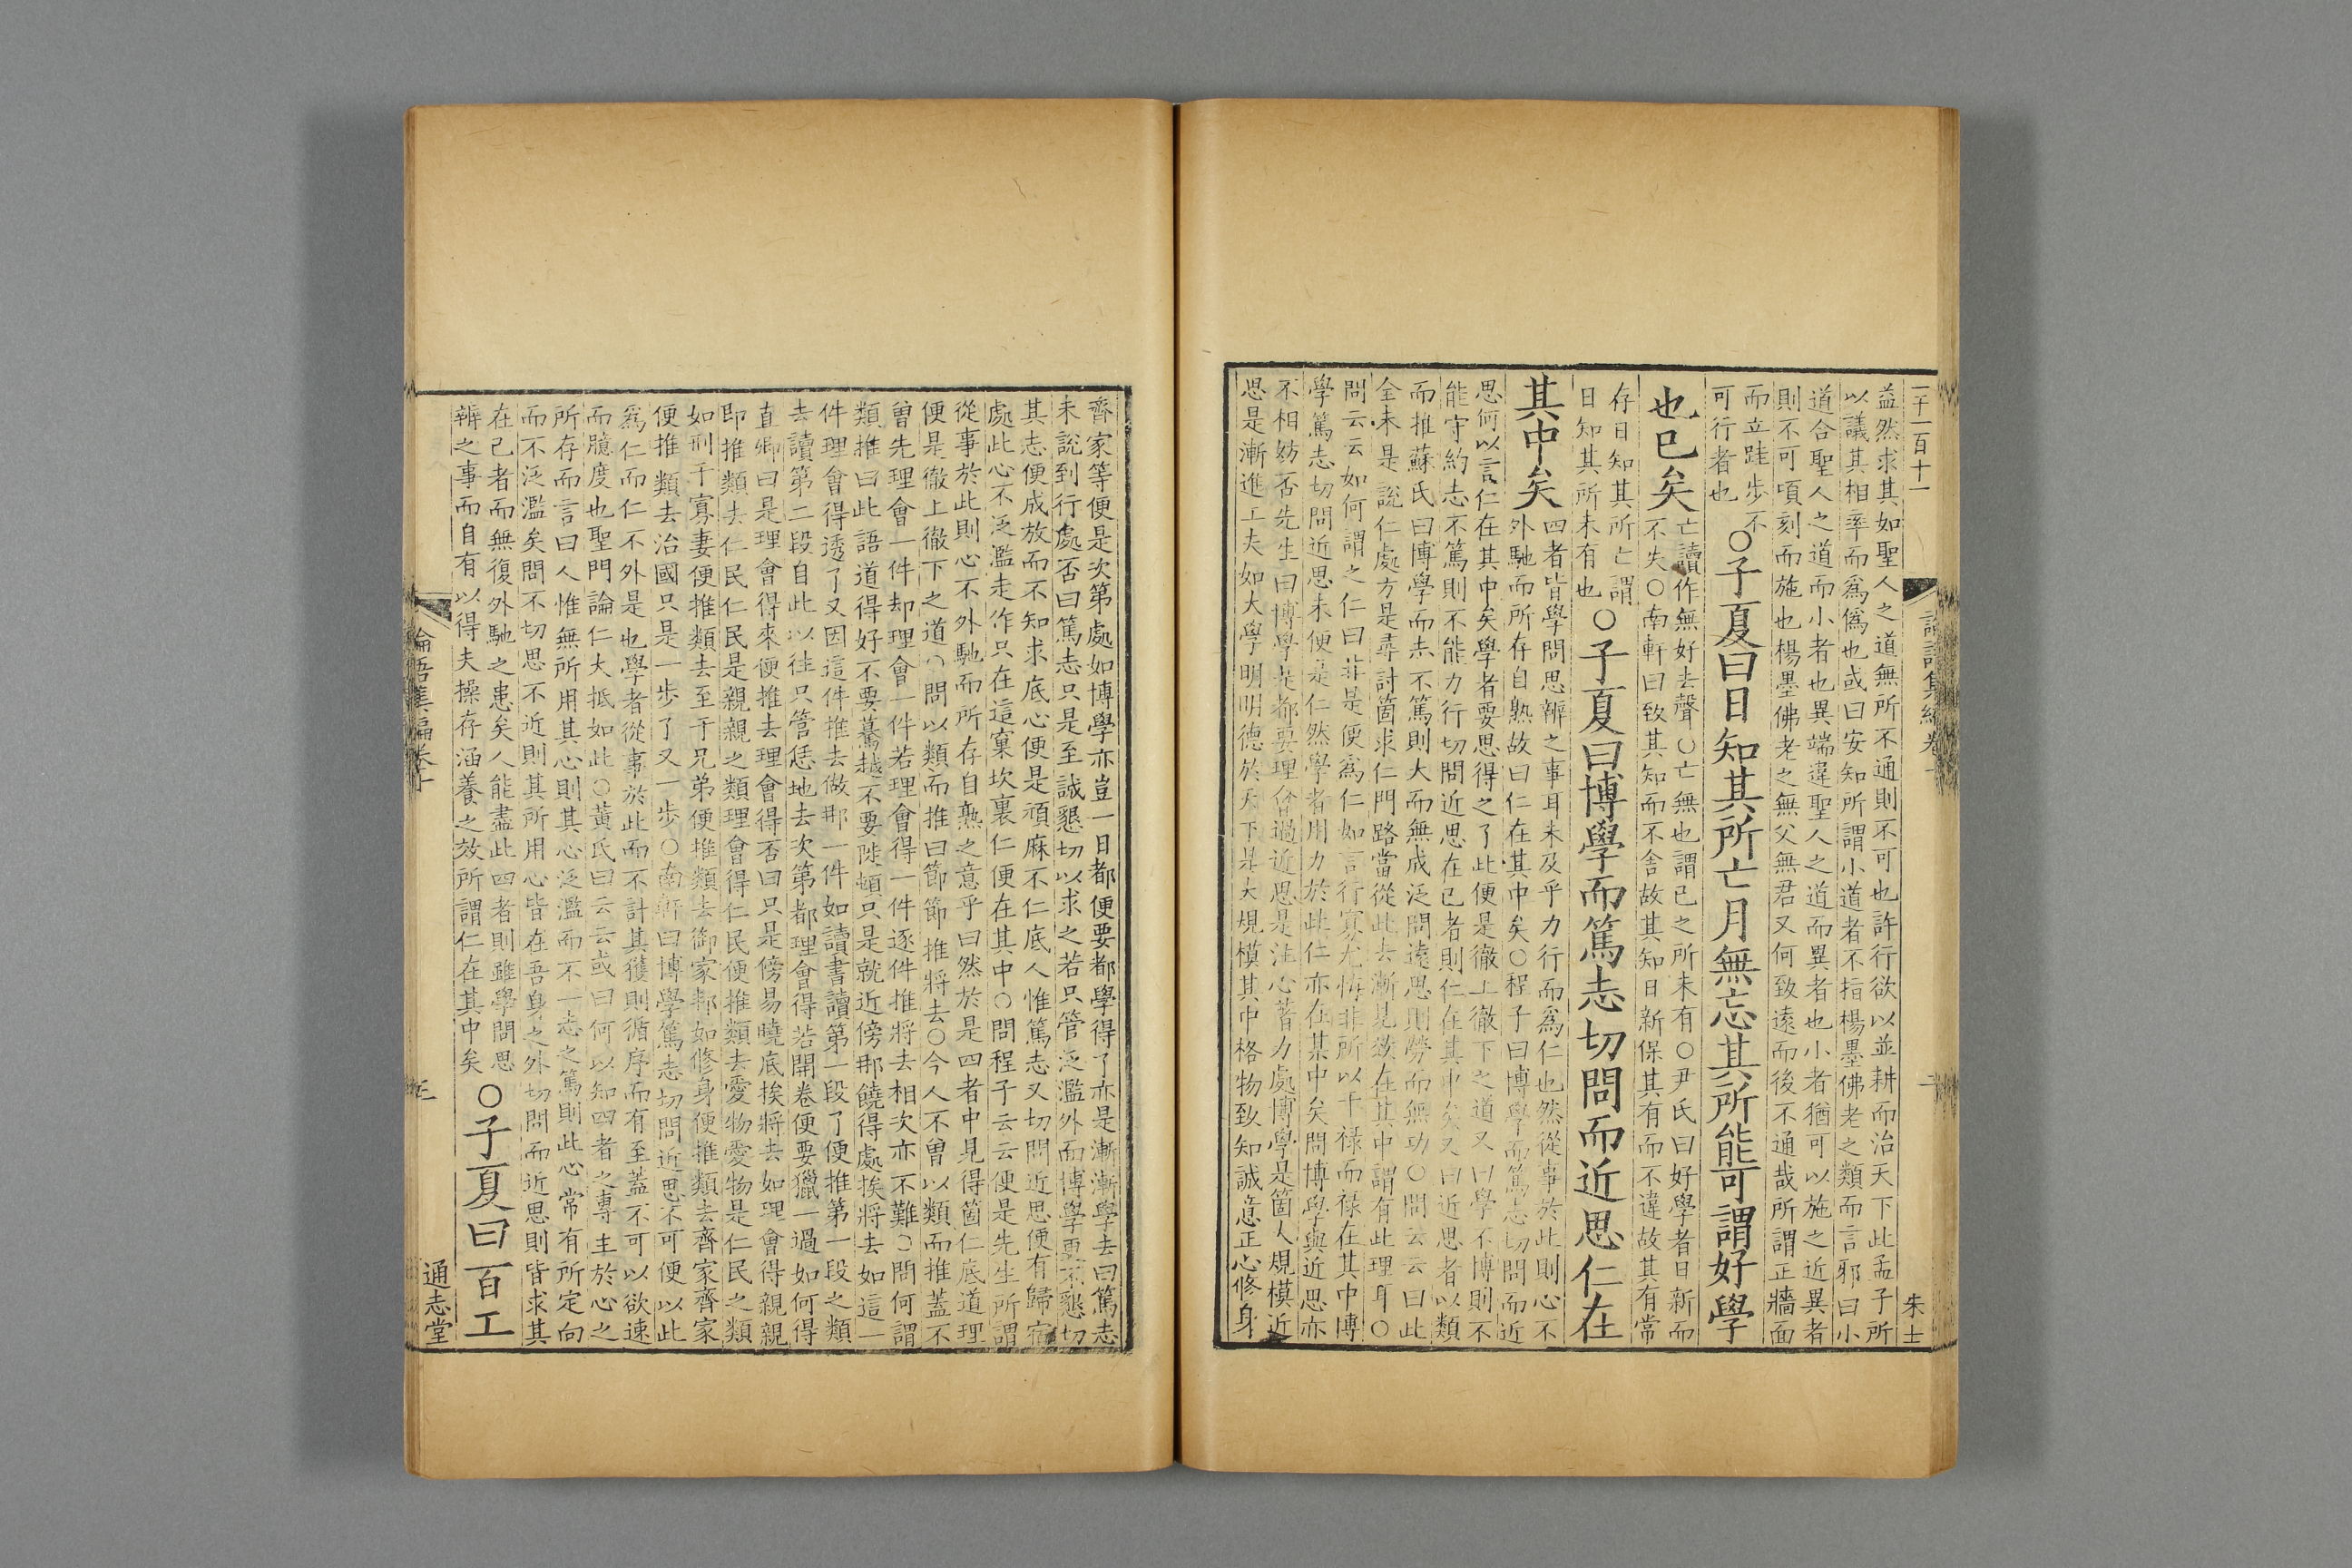 一千一百十一
朱士
益然求其如聖人之道無所不通則不可也許行欲以並耕而治天下此孟子所
以議其相率而爲僞也或曰安知所謂小道者不指楊墨佛老之類而言邪曰小
道合聖人之道而小者也異端違聖人之道而異者也小者猶可以施之近異者
則不可頃刻而施也楊墨佛老之無父無君又何致遠而後不通哉所謂正牆面
而立跬步不
可行者也
○子夏曰日知其所亡月無忘其所能可謂好學
也已矣
亡讀作無好去聲○亡無也謂已之所未有○尹氏曰好學者日新而
不失○南軒曰致其知而不舍故其知日新保其有而不違故其有常
存日知其所亡謂
日知其所未有也
○子夏曰博學而篤志切問而近思仁在
其中矣
四者皆學問思辨之事耳未及乎力行而爲仁也然從事於此則心不
外馳而所存自熟故曰仁在其中矣○程子曰博學而篤志切問而近
思何以言仁在其中矣學者要思得之了此便是徹上徹下之道又曰學不博則不
能守約志不篤則不能力行切問近思在已者則仁在其中矣又曰近思者以類
而推蘇氏曰博學而志不篤則大而無成泛問遠思則勞而無功○問云云曰此
全未是說仁處方是尋討箇求仁門路當從此去漸見效在其中謂有此理耳○
問云云如何謂之仁曰非是便爲仁如言行寡尤悔非所以干祿而祿在其中博
學篤志切問近思未便是仁然學者用力於此仁亦在其中矣問博學與近思亦
不相妨否先生曰博學是都要理會過近思是注心著力處博學是箇人規模近
思是漸進工夫如大學明明德於天下是大規模其中格物致知誠意正心修身
齊家等便是次第處如博學亦豈一日都便要都學得了亦是漸漸學去曰篤志
未說到行處否曰篤志只是至誠懇切以求之若只管泛濫外面博學更不懇切
其志便成放而不知求底心便是頑麻不仁底人惟篤志又切問近思便有歸宿
處此心不泛濫走作只在這窠坎裏仁便在其中○問程子云云便是先生所謂
從事於此則心不外馳而所存自熟之意乎曰然於是四者中見得箇仁底道理
便是徹上徹下之道○問以類而推曰節節推將去○今人不曾以類而推蓋不
曾先理會一件却理會一件若理會得一件逐件推將去相次亦不難○問何謂
類推曰此語道得好不要驀越不要陡頓只是就近傍那饒得處挨將去如這一
件理會得透了又因這件推去做那一件如讀書讀第一段了便推第一段之類
去讀第二段自此以往只管恁地去次第都理會得若開卷便要獵一過如何得
直卿曰是理會得來便推去理會得否曰只是傍易曉底挨將去如理會得親親
即推類去仁民仁民是親親之類理會得仁民便推類去愛物愛物是仁民之類
如刑于寡妻便推類去至于兄弟便推類去御家邦如修身便推類去齊家齊家
便推類去治國只是一步了又一步○南軒曰博學篤志切問近思不可便以此
爲仁而仁不外是也學者從事於此而不計其獲則循序而有至蓋不可以欲速
而臆度也聖門論仁大抵如此○黃氏曰云云或曰何以知四者之專主於心之
所存而言曰人惟無所用其心則其心泛濫而不一志之篤則此心常有所定向
而不泛濫矣問不切思不近則其所用心皆在吾身之外切問而近思則皆求其
在已者而無復外馳之患矣人能盡此四者則雖學問思
辨之事而自有以得夫操存涵養之效所謂仁在其中矣
○子夏曰百工
論語集編卷十
三
通志堂